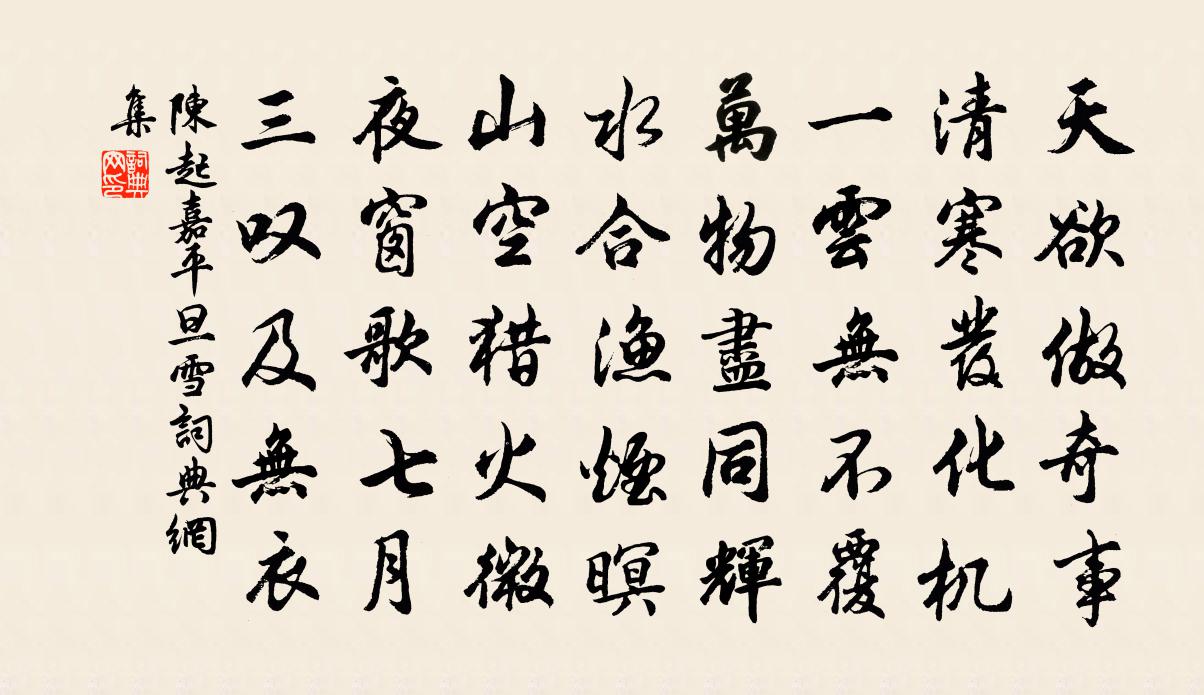 天欲做奇事
清寒發化机
一雲無不覆
萬物盡同輝
水合漁煙暝
山空猎火微
夜窗歌七月
三叹及無衣
陳起嘉平旦雪詞典網
集
詞典网印